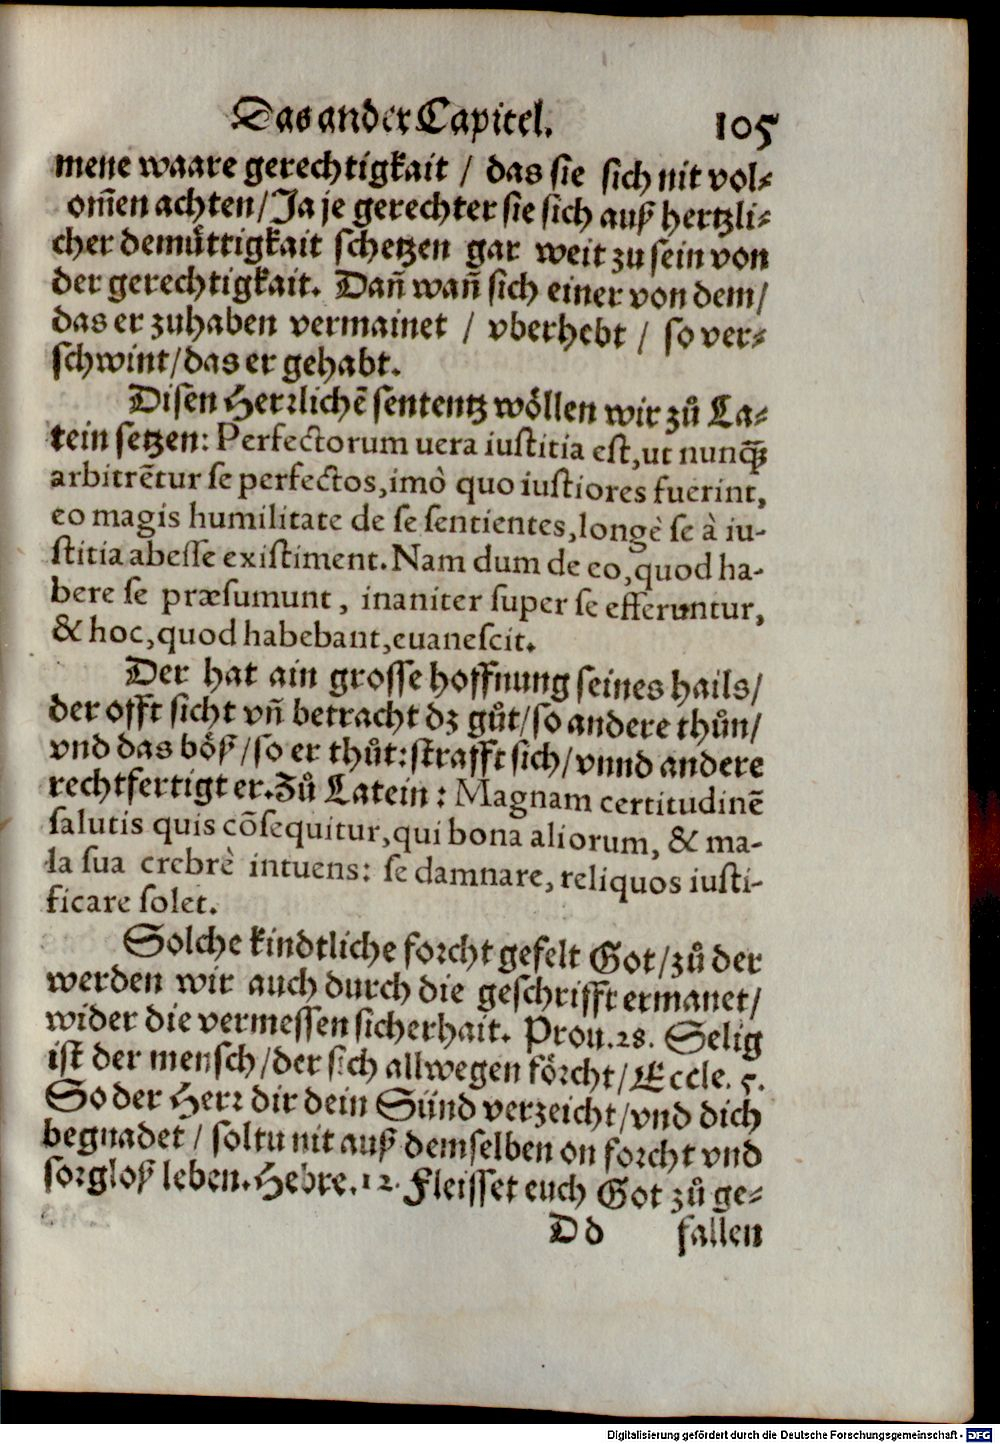 Das ander Capitel. 105
mene waare gerechtigkait / das sie sich nit vol⸗
om̃en achten / Ja je gerechter sie sich auß hertzli⸗
cher demuͤttigkait schetzen gar weit zu sein von
der gerechtigkait. Dañ wañ sich einer von dem /
das er zuhaben vermainet / vberhebt / so ver⸗
schwint / das er gehabt.
Disen Herꝛlichẽ sententz woͤllen wir zuͦ La⸗
tein setzen: Perfectorum uera iustitia est, ut nunꝙ̃
arbitrẽtur se perfectos, imò quo iustiores fuerint,
eo magis humilitate de se sentientes, longè se à iu-
stitia abesse existiment. Nam dum de eo, quod ha-
bere se præsumunt, inaniter super se efferuntur,
& hoc, quod habebant, euanescit.
Der hat ain grosse hoffnung seines hails /
der offt sicht vñ betracht dz guͦt / so andere thuͦn /
vnd das boͤß / so er thuͦt: strafft sich / vnnd andere
rechtfertigt er. Zuͦ Latein: Magnam certitudinẽ
salutis quis cõsequitur, qui bona aliorum, & ma-
la sua crebrè intuens: se damnare, reliquos iusti-
ficare solet.
Solche kindtliche forcht gefelt Got / zuͦ der
werden wir auch durch die geschrifft ermanet /
wider die vermessen sicherhait. Prou. 28. Selig
ist der mensch / der sich allwegen foͤrcht / Eccle. 5.
So der Herꝛ dir dein Sünd verzeicht / vnd dich
begnadet / soltu nit auß demselben on forcht vnd
sorgloß leben. Hebre. 12. Fleisset euch Got zuͦ ge⸗
Dd fallen
Digitalisierung gefördert durch die Deutsche Forschungsgemeinschaft - DFG